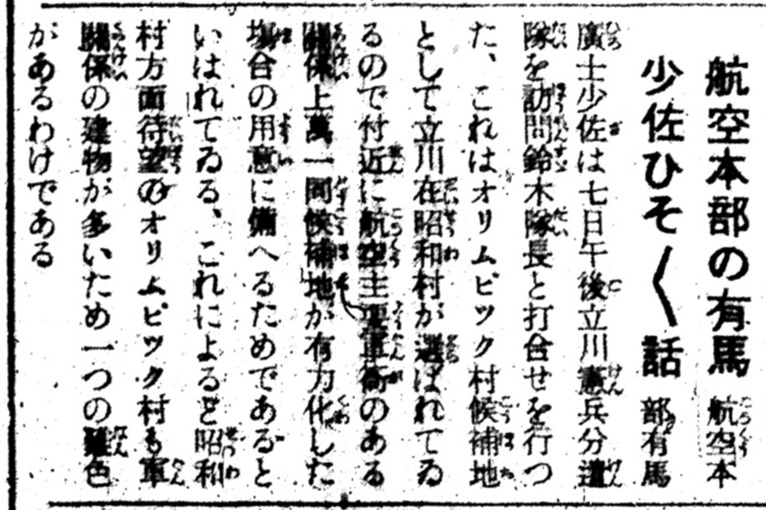 航空本部の有馬
少佐ひそ〱話
航空本
部有馬
廣士少佐は七日午後立川憲兵分遣
隊を訪問鈴木隊長と打合せを行つ
た、これはオリムピツク村候補地
として立川在昭和村が選ばれてゐ
るので付近に航空主要軍衙のある
關係上萬一同候補地が有力化した
場合の用意に備へるためであると
いはれてゐる、これによると昭和
村方面待望のオリムピツク村も軍
關係の建物が多いため一つの難色
があるわけである